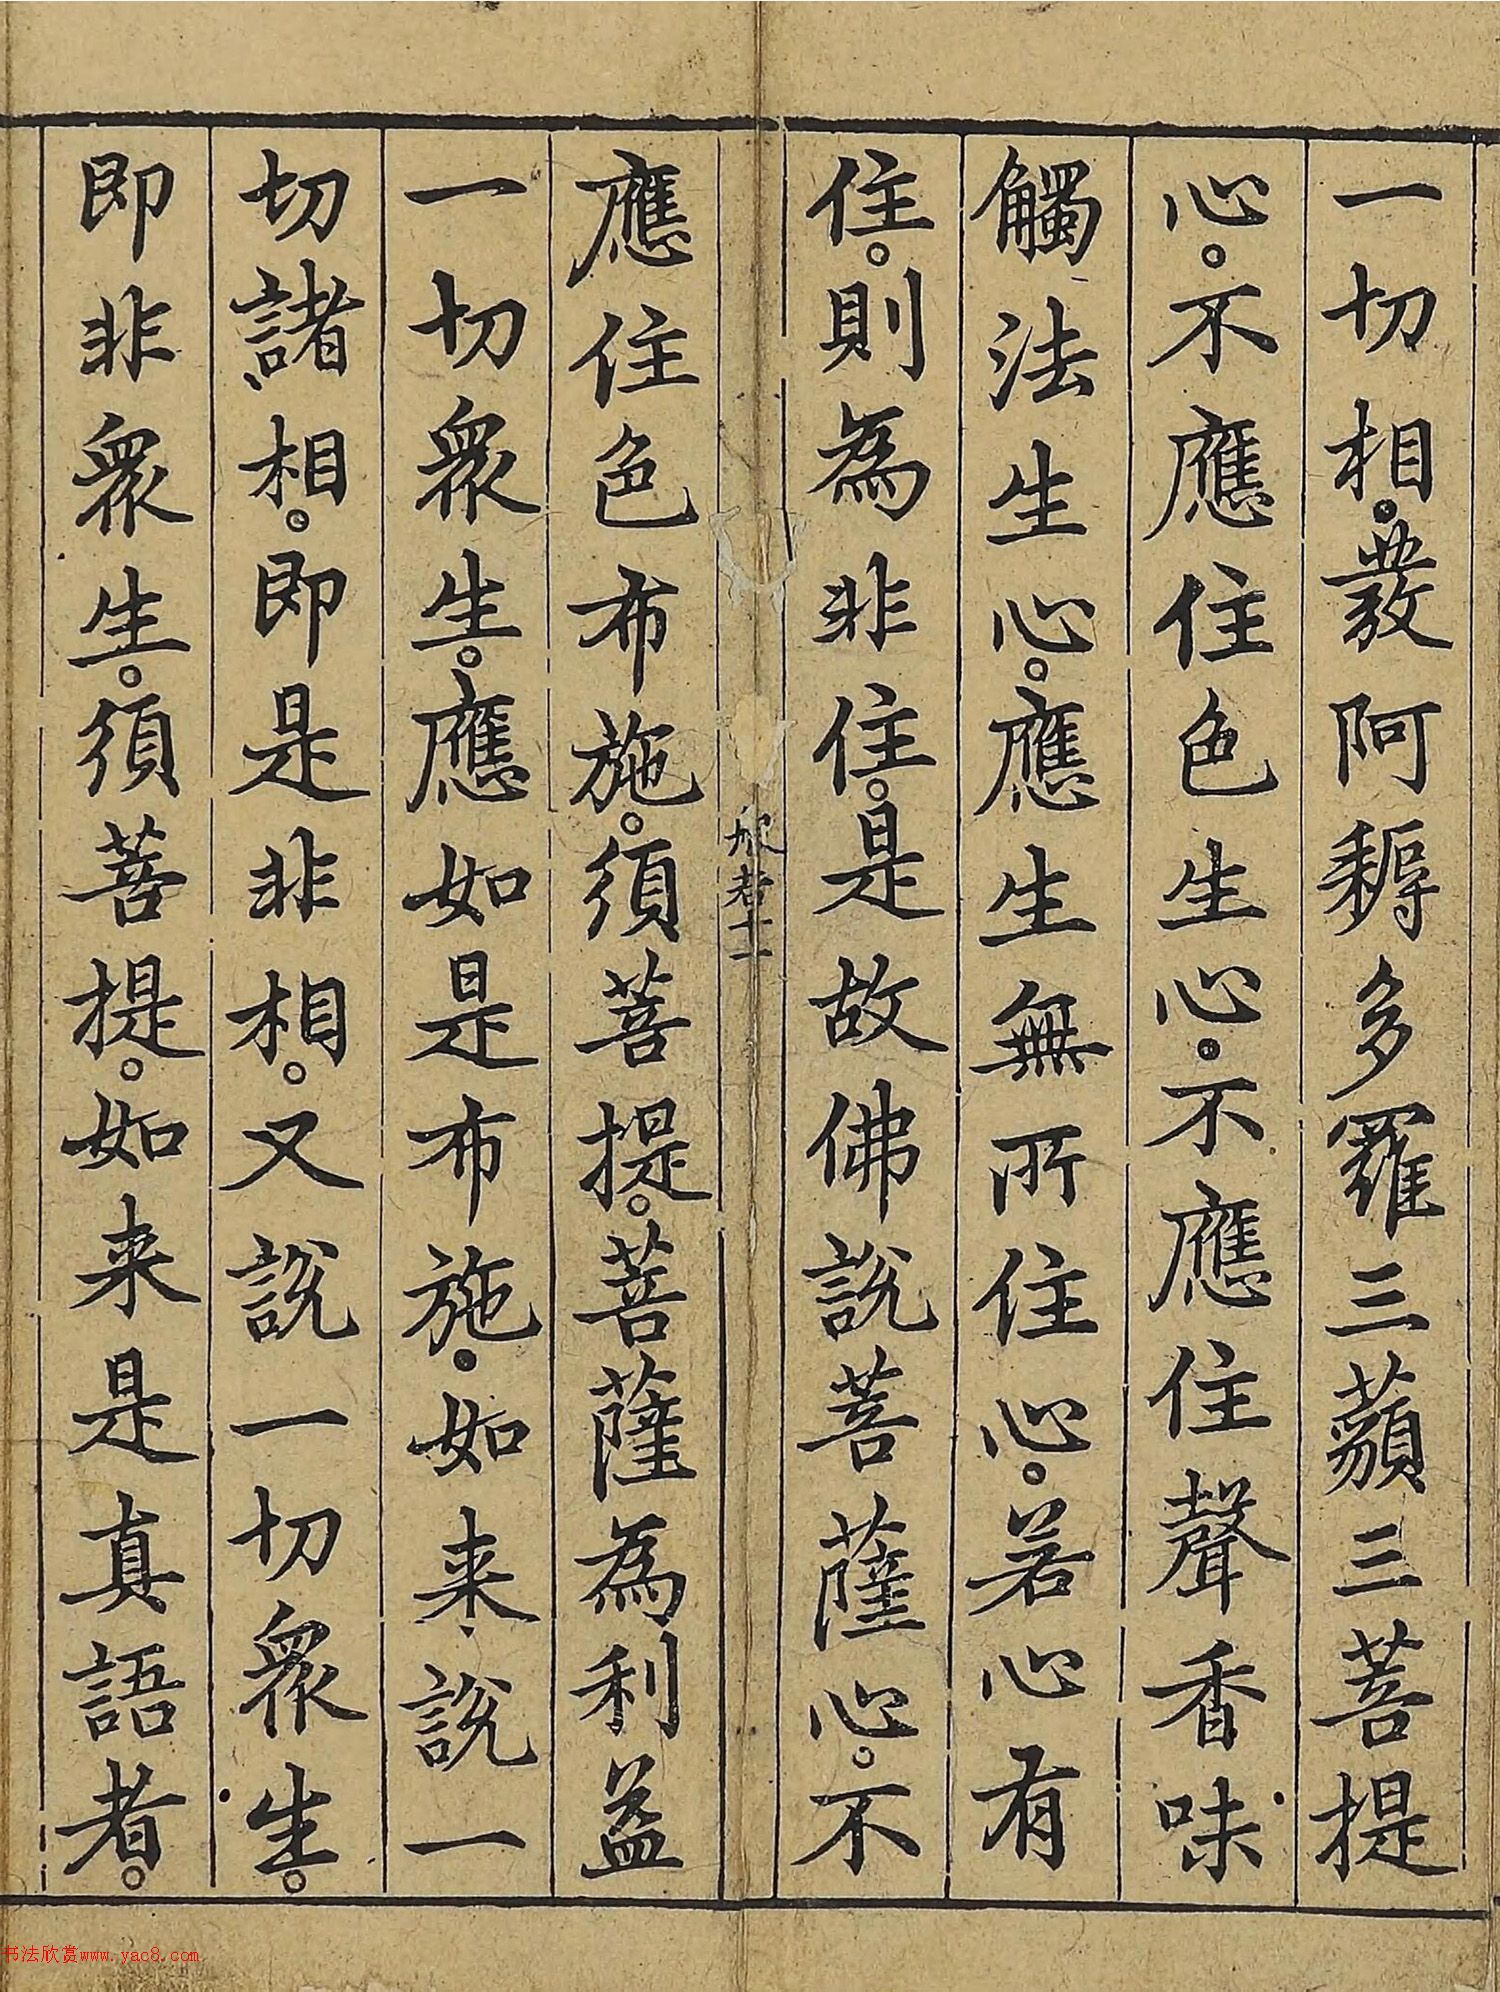 一切相。發阿耨多羅三藐三菩提
心。不應住色生心。不應住聲香味
觸法生心。應生無所住心。若心有
住。則為非住。是故佛說菩薩心。不
應住色布施。須菩提。菩薩為利益
一切眾生。應如是布施。如来說一
切諸相。即是非相。又說一切眾生。
即非眾生。須菩提。如来是真語者。
书法欣赏www.yac8.com